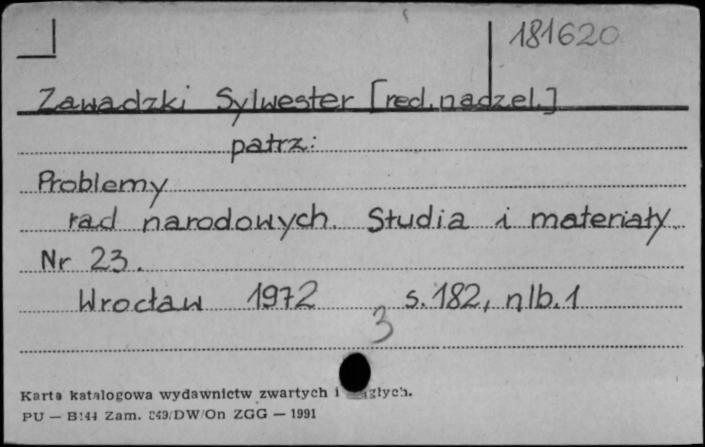 181620
Zawadzki Sylwester [red. nadzel.]
patrz:
Problemy
rad narodowych. Studia i materiały.
Nr 23.
Wrocław 1972 s. 182, nlb. 1
3
Karta katalogowa wydawnictw zwartych i
PU — Zam. DW/On ZGG — 1991